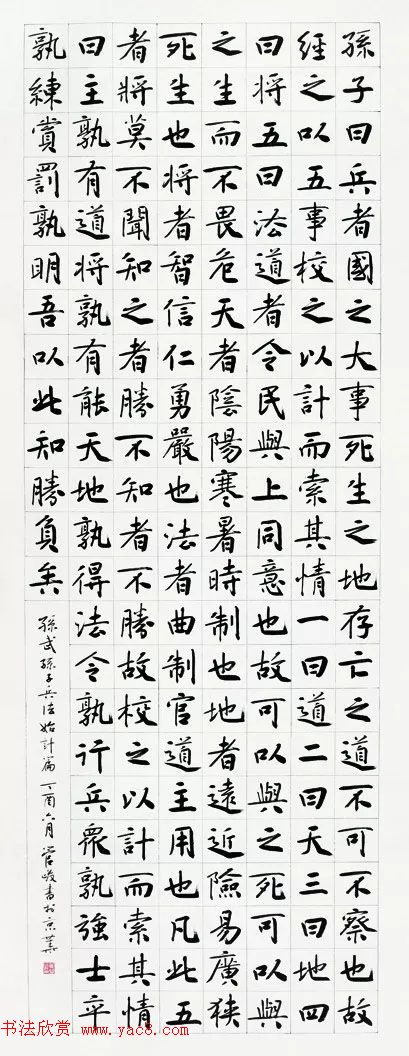 孫子曰兵者國之大事死生之地存亡之道不可不察也故
經之以五事校之以計而索其情一曰道二曰天三曰地四
曰將五曰法道者令民與上同意也故可以與之死可以與
之生而不畏危天者陰陽寒暑時制也地者遠近險易廣狹
死生也將者智信仁勇嚴也法者曲制官道主用也凡此五
者將莫不聞知之者勝不知者不勝故校之以計而索其情
曰主孰有道將孰有能天地孰得法令孰行兵眾孰強士卒
孰練賞罰孰明吾以此知勝負矣
孫武孫子兵法始計篇 丁酉六月 管峻書於京華
书法欣赏 www.yac8.com